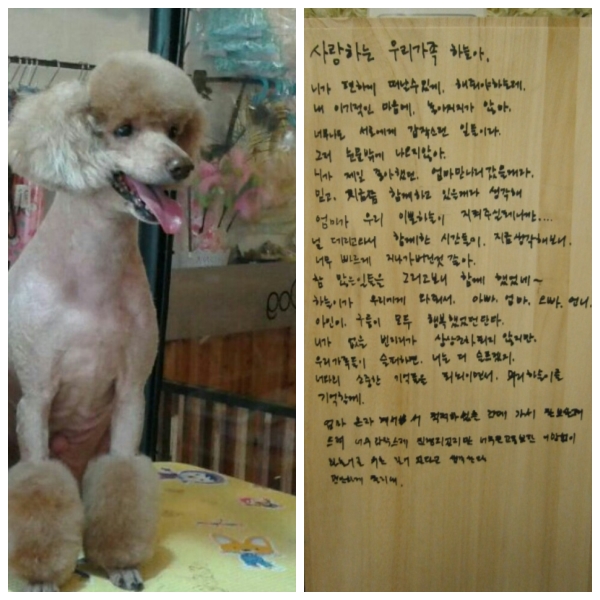 사랑하는 우리가족 하늘아,
니가 편하게 떠날수있게, 해줘야하는데.
내 이기적인 마음에, 놓아지지가 않아.
너무나도 서로에게 갑작스런 일들이라.
그저 눈물밖에 나오지않아.
니가 제일 좋아했던, 엄마만나러갔을꺼라.
믿고, 지금쯤 함께하고 있을꺼라 생각해
엄마가 우리 이쁜하늘이 지켜주실테니까....
널 데리고와서 함께한 시간들이, 지금생각해보니.
너무 빠르게 지나가버린것 같아.
참 많은일들을 그러고보니 함께 했었네~
하늘이가 우리에게 다가와서, 아빠, 엄마, 오빠, 언니,
아인이, 구름이 모두 행복했었단다.
니가 없을 빈자리가 상상조차되지 않지만,
우리가족들이 슬퍼하면, 너는 더 슬프겠지.
너와의 소중한 기억들은 되뇌이면서, 우리하늘이를
기억할께.
엄마 혼자 계셔서 적적하셨을